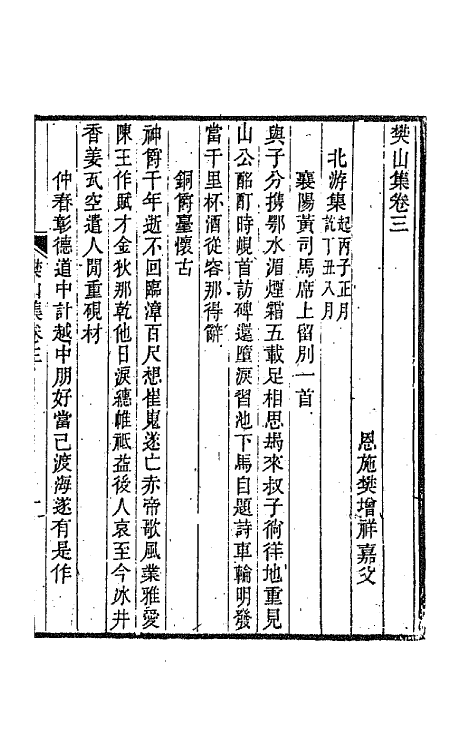 樊山集卷三
恩施樊增祥嘉父
北游集起丙子正月訖丁丑八月
襄陽黃司馬席上留別一首
與子分攜鄂水湄煙霜五載足相思朅來叔子徜徉地重見
山公酩酊時峴首訪碑還墮淚習池下馬自題詩車輪明發
當千里杯酒從容那得辭
銅爵臺懷古
神爵千年逝不回臨漳百尺想崔嵬遂亡赤帝歌風業雅愛
陳王作賦才金狄那乾他日淚繐帷祗益後人哀至今冰井
香姜瓦空遣人閒重硯材
仲春彰德道中計越中朋好當已渡海遂有是作
樊山集卷三
一